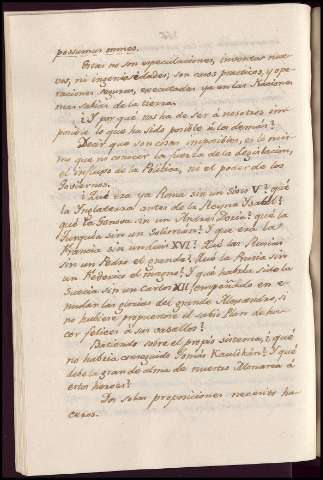 possumus omnes.
Estas no son especulaciones, inventos nue-
vos, ni ingeniosidades; son casos practicos, y ope-
raciones seguras, executadas ya en las Naciones
mas sabias de la tierra.
¿Y por qué nos ha de ser á nosotros im-
posible lo que ha sido posible á los demás?
Decir que son cosas imposibles, es lo mis-
mo que no conocer la fuerza de la legislacion,
el influxo de la Politica, ni el poder de los
Goviernos.
¿Qué era ya Roma sin un Sixto V? ¿qué
la Ynglaterra antes de la Reyna Ysabel?
qué la Genova sin un Andres Doria? qué la
Turquia sin un Soliman? Y qué era la
Francia sin un Luis XVI? Qué las Rusias
sin un Pedro el grande? Qué la Prusia sin
un Federico el magno? Y qué habria sido la
Suecia sin un Carlos XII, empeñado en e-
mular las glorias del grande Alexandro, si
no hubiere proponerse el sabio Plan de ha-
cer felices á sus vasallos?
Batiendo sobre el propio sistema, ¿qué
no habria conseguido Tomás Kaulikán? Y qué
debe la grande alma de nuestro Monarca á
estos heroes?
Dos solas proposiciones necesito ha-
ceros.